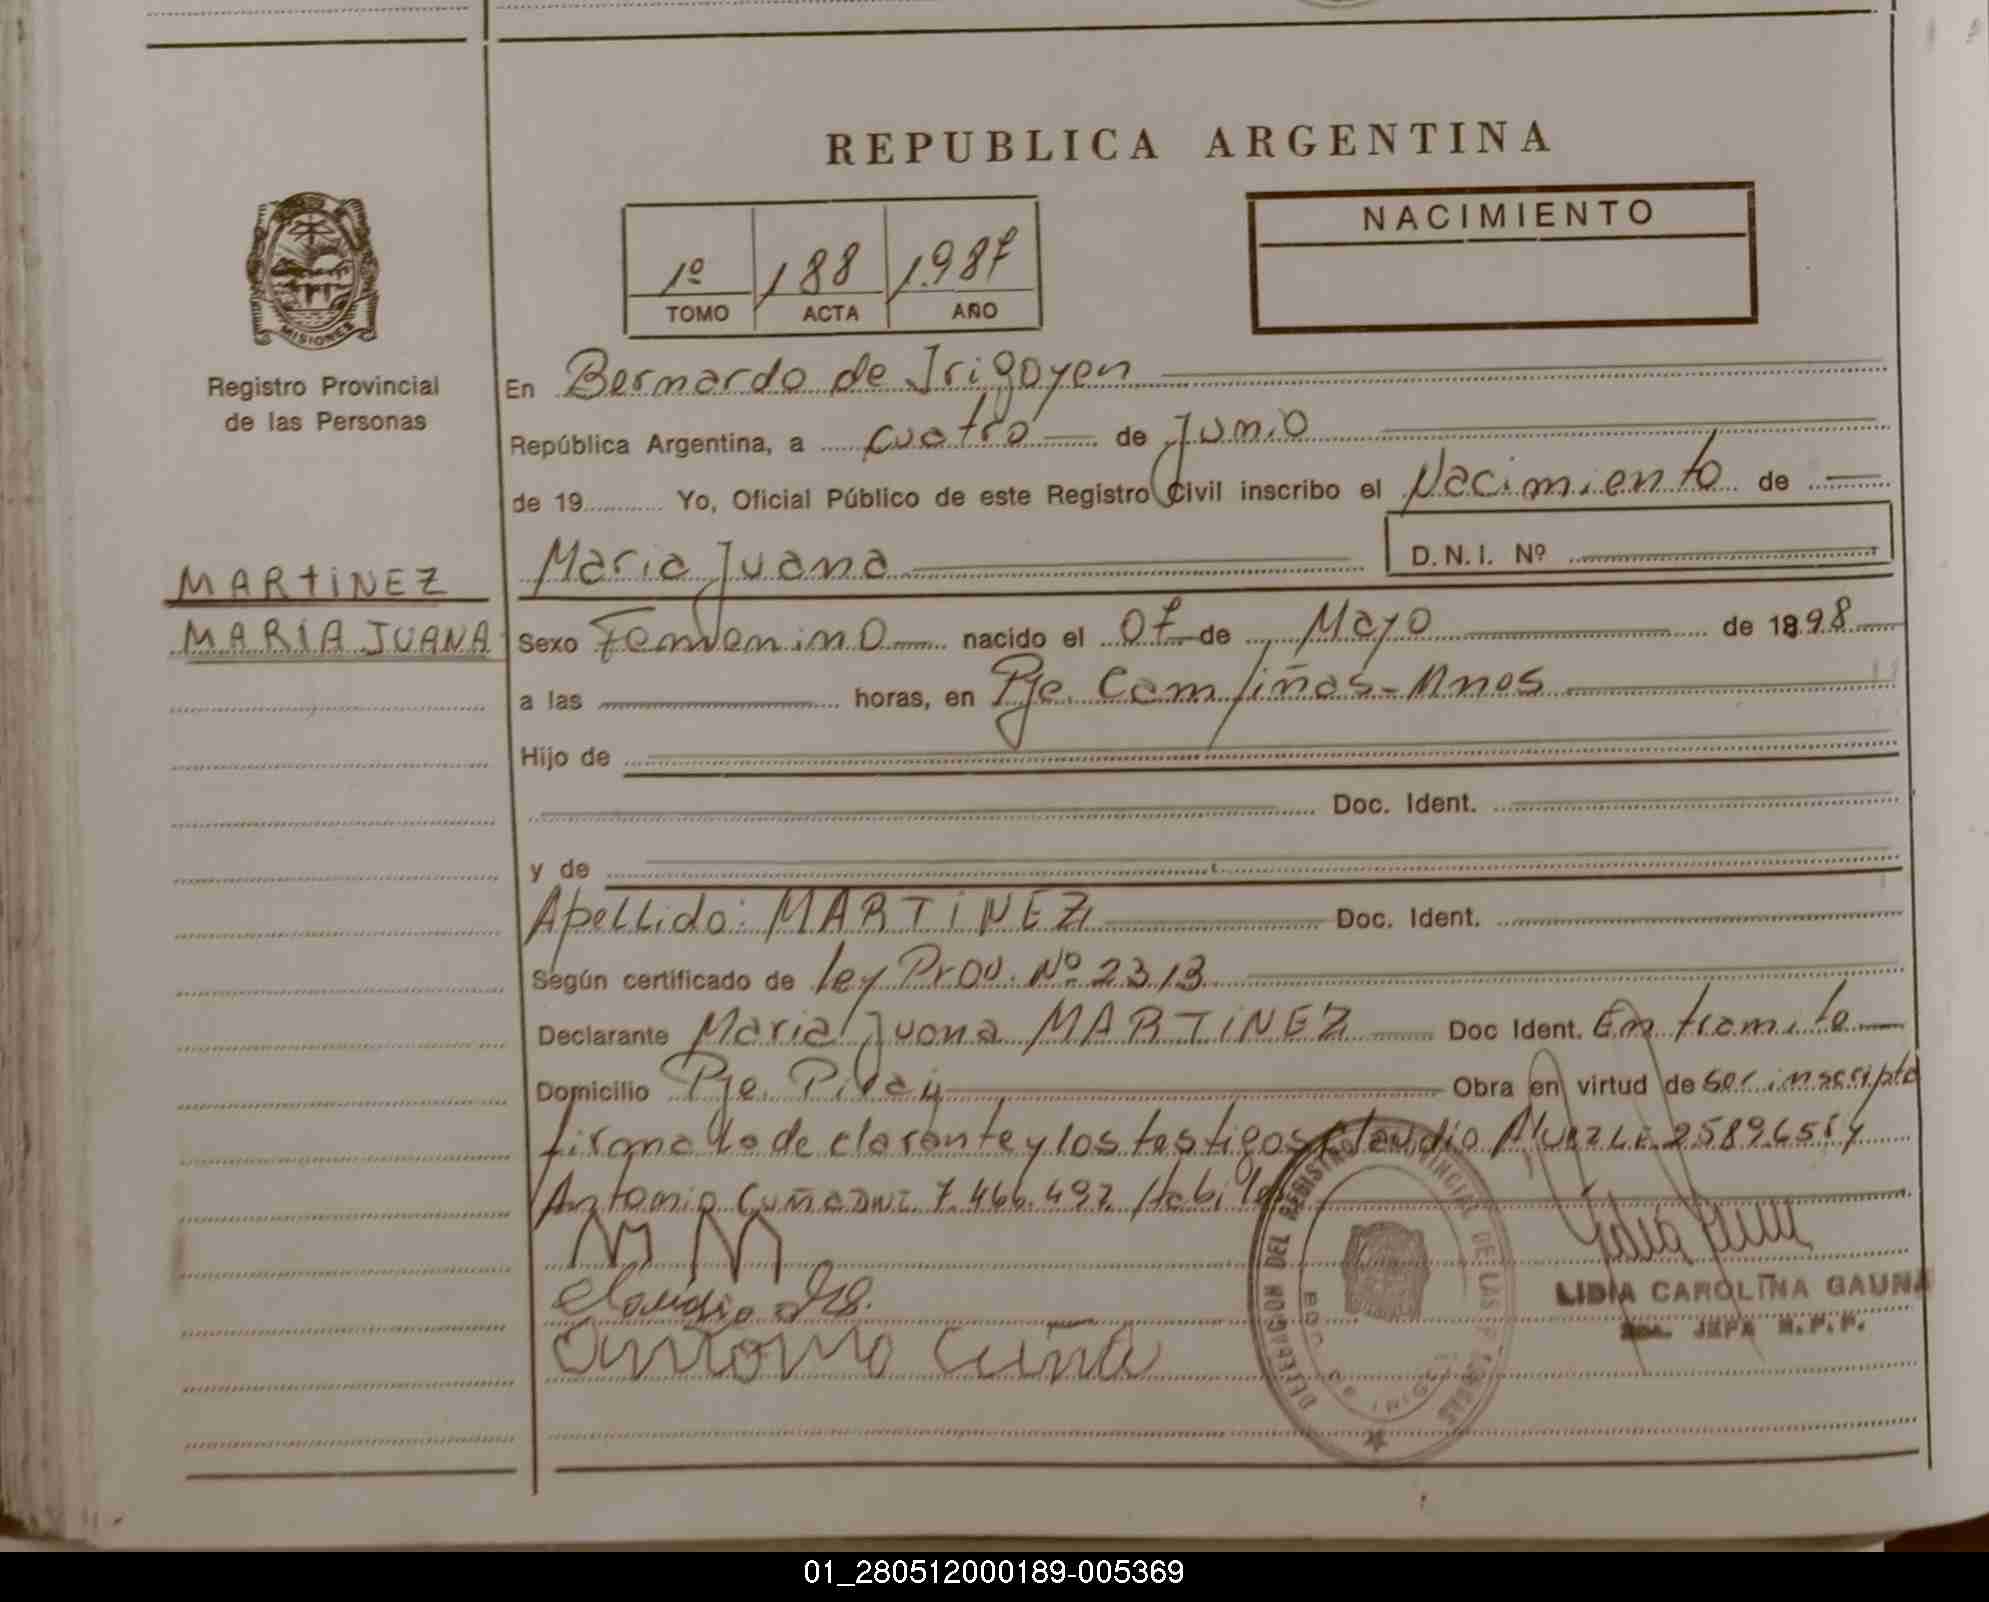 REPUBLICA ARGENTINA
NACIMIENTO
1º 188 1.987
TOMO ACTA AÑO
MISIONES
Registro Provincial
de las Personas
En Bernardo de Irigoyen
República Argentina, a cuatro de Junio
de 19 Yo, Oficial Público de este Registro Civil inscribo el Nacimiento de
MARTINEZ
MARIA JUANA
Maria Juana D.N.I. Nº
Sexo Femenino nacido el 07 de Mayo de 1898
a las horas, en Pje. Campiñas-Mnes
Hijo de
Doc. Ident.
y de
Apellido: MARTINEZ Doc. Ident.
Según certificado de ley Prov. Nº 2313
Declarante Maria Juana MARTINEZ Doc Ident. En tramite
Domicilio Pje. Piray Obra en virtud de ser inscripta
firma la declarante y los testigos Claudio y
Antonio Cuña DNI. 7.466.497 Habiles
M M
Claudio
Antonio Cuña
DELEGACION DEL REGISTRO PROVINCIAL DE LAS PERSONAS
BDO. DE IRIGOYEN
LIDIA CAROLINA GAUNA
JEFA R.P.P.
01_280512000189-005369